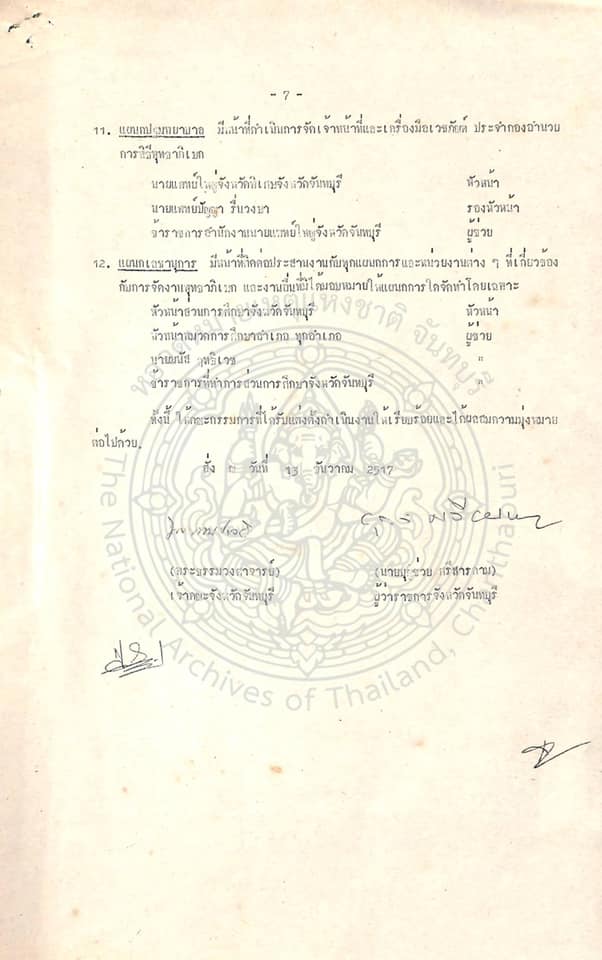 - 7 -
11. แผนกปฐมพยาบาล มีหน้าที่ดำเนินการจัดเจ้าหน้าที่และเครื่องมือเวชภัณฑ์ ประจำกองอำนวย
การพิธีพุทธาภิเษก
นายแพทย์ใหญ่จังหวัดพิเศษจังหวัดจันทบุรี หัวหน้า
นายแพทย์ปัญญา รื่นวงษา รองหัวหน้า
ข้าราชการสำนักงานนายแพทย์ใหญ่จังหวัดจันทบุรี ผู้ช่วย
12. แผนกเลขานุการ มีหน้าที่ติดต่อประสานงานกับทุกแผนกการและหน่วยงานต่าง ๆ ที่เกี่ยวข้อง
กับการจัดงานพุทธาภิเษก และงานอื่นที่มิได้มอบหมายให้แผนกการใดจัดทำโดยเฉพาะ
หัวหน้าส่วนการศึกษาจังหวัดจันทบุรี หัวหน้า
หัวหน้าหมวดการศึกษาอำเภอ ทุกอำเภอ ผู้ช่วย
นายมนัส "
ข้าราชการที่ทำการส่วนการศึกษาจังหวัดจันทบุรี "
ทั้งนี้ ให้คณะกรรมการที่ได้รับแต่งตั้งดำเนินงานให้เรียบร้อยและได้ผลสมความมุ่งหมาย
ต่อไปด้วย.
สั่ง ณ วันที่ 13 ธันวาคม 2517
(พระธรรมวงศาจารย์) (นายบุญช่วย ศรีสารคาม)
เจ้าคณะจังหวัดจันทบุรี ผู้ว่าราชการจังหวัดจันทบุรี
หอจดหมายเหตุแห่งชาติ จันทบุรี
The National Archives of Thailand, Chanthaburi